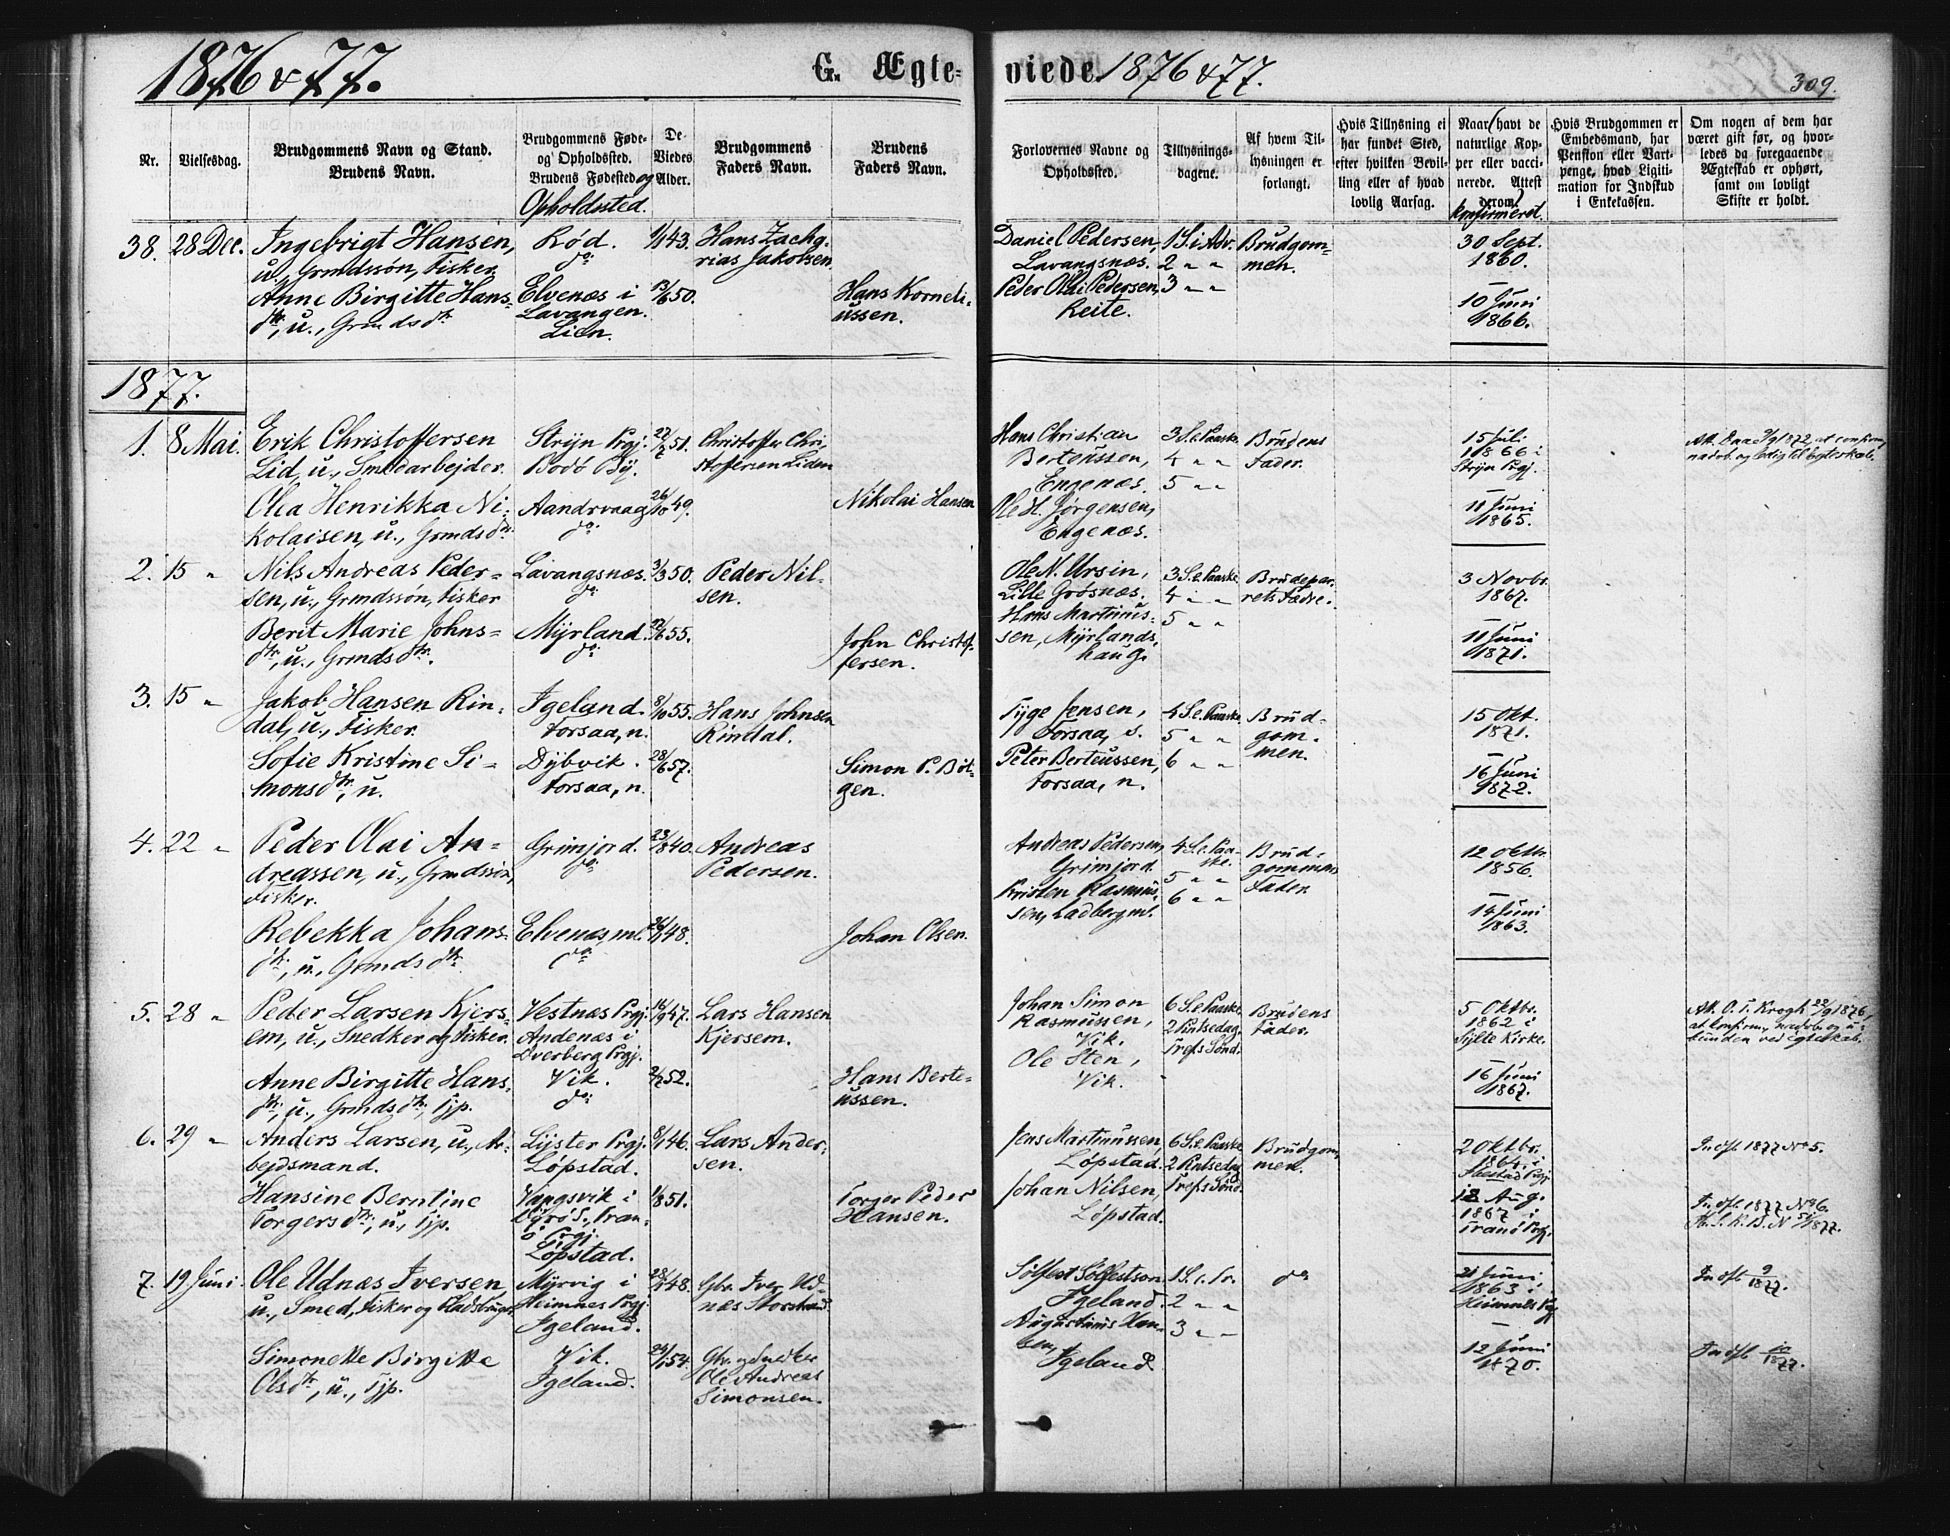 1876 & 77.
G. Ægte-
viede 1876 & 77.
309.
Nr.
Vielsesdag.
Brudgommens Navn og Stand.
Brudens Navn.
Brudgommens Føde-
og Opholdssted.
Brudens Fødested og
Opholdssted.
De
Viedes
Alder.
Brudgommens
Faders Navn.
Brudens
Faders Navn.
Forlovernes Navne og
Opholdssted.
Tillysnings-
dagene.
Af hvem Til-
lysningen er
forlangt.
Hvis Tillysning ei
har fundet Sted,
efter hvilken Bevil-
ling eller af hvad
lovlig Aarsag.
Naar havt de
naturlige Kop-
per eller vacci-
nerede. Attest
derom
Konfirmeret.
Hvis Brudgommen er
Embedsmand, har
Pension eller Vart-
penge, hvad Ligiti-
mation for Indskud
i Enkekassen.
Om nogen af dem har
været gift før, og hvor-
ledes da foregaaende
Ægteskab er ophørt,
samt om lovligt
Skifte er holdt.
38. 28 Dec.
Ingebrigt Hansen,
u., Grmdssøn, Fisker
Anne Birgitte Hans-
dtr, u., Grmdsdtr
Rød.
do
Elvenæs i
Lavangen.
Lien.
1/1 43.
13/6 50.
Hans Zacha-
rias Jakobsen
Hans Korneli-
ussen.
Daniel Pedersen,
Lavangsnæs.
Peder Olai Pedersen,
Reite.
1 S. i Adv.
2 " "
3 " "
Brudgom-
men.
30 Sept.
1860.
10 Juni
1866.
1877.
1. 8 Mai.
Erik Christoffersen
Lid, u., Smedarbejder.
Olea Henrikka Ni-
kolaisen, u., Grmdsdtr
Stryn Prgj.
Bodø By.
Aandsvaag
do
27/2 51.
26/10 49.
Christoffer Chri-
stoffersen Liden
Nikolai Hansen
Hans Christian
Berteussen,
Engenæs.
Ole H. Jørgensen,
Engenæs.
3 S. e. Paaske
4 " "
5 " "
Brudens
Fader.
15 Juli
1866 i
Stryn Prgj.
11 Juni
1865.
2. 15 "
Nils Andreas Peder-
sen, u., Grmdssøn, Fisker
Berit Marie Johns-
dtr, u., Grmdsdtr.
Lavangsnæs.
do
Myrland.
do
3/3 50.
55.
Peder Nil-
sen.
John Christof-
fersen.
Ole N. Ursin,
Lille Grøsnæs.
Hans Martinus-
sen, Myrlands
haug.
3 S. e. Paaske
4 " "
5 " "
Brudepar-
rets Fædre.
3 Novbr.
1867.
11 Juni
1871.
3. 15 "
Jakob Hansen Rin-
dal, u., Fisker.
Sofie Kristine Si-
monsdtr, u.
Igeland.
Forsaa, n.
Dybvik.
Forsaa, n.
8/10 55.
28/6 57.
Hans Johnsen
Rindal.
Simon P. Bøt-
gen.
Tyge Jensen,
Forsaa, s.
Peter Berteussen,
Forsaa, n.
4 S. e. Paaske
5 " "
6 " "
Brud-
gom-
men.
15 Okt.
1871.
16 Juni
1872.
4. 22 "
Peder Olai An-
dreassen, u., Grmdssøn,
Fisker.
Rebekka Johans-
dtr, u., Grmdsdtr
Grimjord.
do
Elvenæs ml.
do
23/8 40.
48.
Andreas
Pedersen.
Johan Olsen.
Andreas Pedersen,
Grimjord
Kristen Rasmus-
sen, Ladberg ml.
4 S. e. Paa-
ske.
5 " "
6 " "
Brud-
gommens
Fader.
12 Oktb.
1856.
14 Juni
1863.
5. 28 "
Peder Larsen Kjers-
em, u., Snedker og Fisker.
Anne Birgitte Hans-
dtr, u., Grmdsdtr, Tjp.
Vestnæs Prgj.
Andenæs i
Dverberg Prgj.
Vik.
do
16/9 47.
2/7 52.
Lars Hansen
Kjersem.
Hans Berte-
ussen.
Johan Simon
Rasmussen,
Vik.
Ole Sten,
Vik.
6 S. e. Paaske
2 Pintsedag
Trefs Sønd.
Brudens
Fader.
5 Oktbr.
1862 i
Sylte Kirke.
16 Juni
1867.
6. 29 "
Anders Larsen, u., Ar-
bejdsmand.
Hansine Berntine
Torgersdtr, u., Tjp.
Lyster Prgj.
Løpstad.
Vangsvik i
Dyrø S., Tran-
ø Prgj.
Løpstad.
8/1 46.
1/8 51.
Lars Ander-
sen.
Torger Peder
Hansen.
Jens Martinussen,
Løpstad.
Johan Nilsen,
Løpstad.
6 S. e. Paaske
2 Pintsedag
Trefs Sønd.
Brudgom-
men.
2 Oktbr.
i
Ibestad Prgj.
12 Aug.
1867 i
Tranø Prgj.
Indfl. 1877 No 5.
Indfl. 1877 No 6.
7. 19 Juni.
Ole Udnæs Iversen
u., Smed, Fisker og Pladsbruger
Simonette Birgitte
Olsdtr, u., Tjp.
Myrvig i
Heimnes Prgj.
Igeland.
Vik.
Igeland.
48.
54.
Gbr. Iver Ud-
næs Storstrand
Gbr. og Snedker
Ole Andreas
Simonsen.
Sølfest Sølfestsen
Igeland.
Augustinus Han-
sen,
Igeland
1 S. e. Tr.
2 " "
3 " "
do
21 Juni
1863 i
Heimnes Prgj
12 Juni
1870.
Indfl. 9/1877.
Indfl. 10/1877.